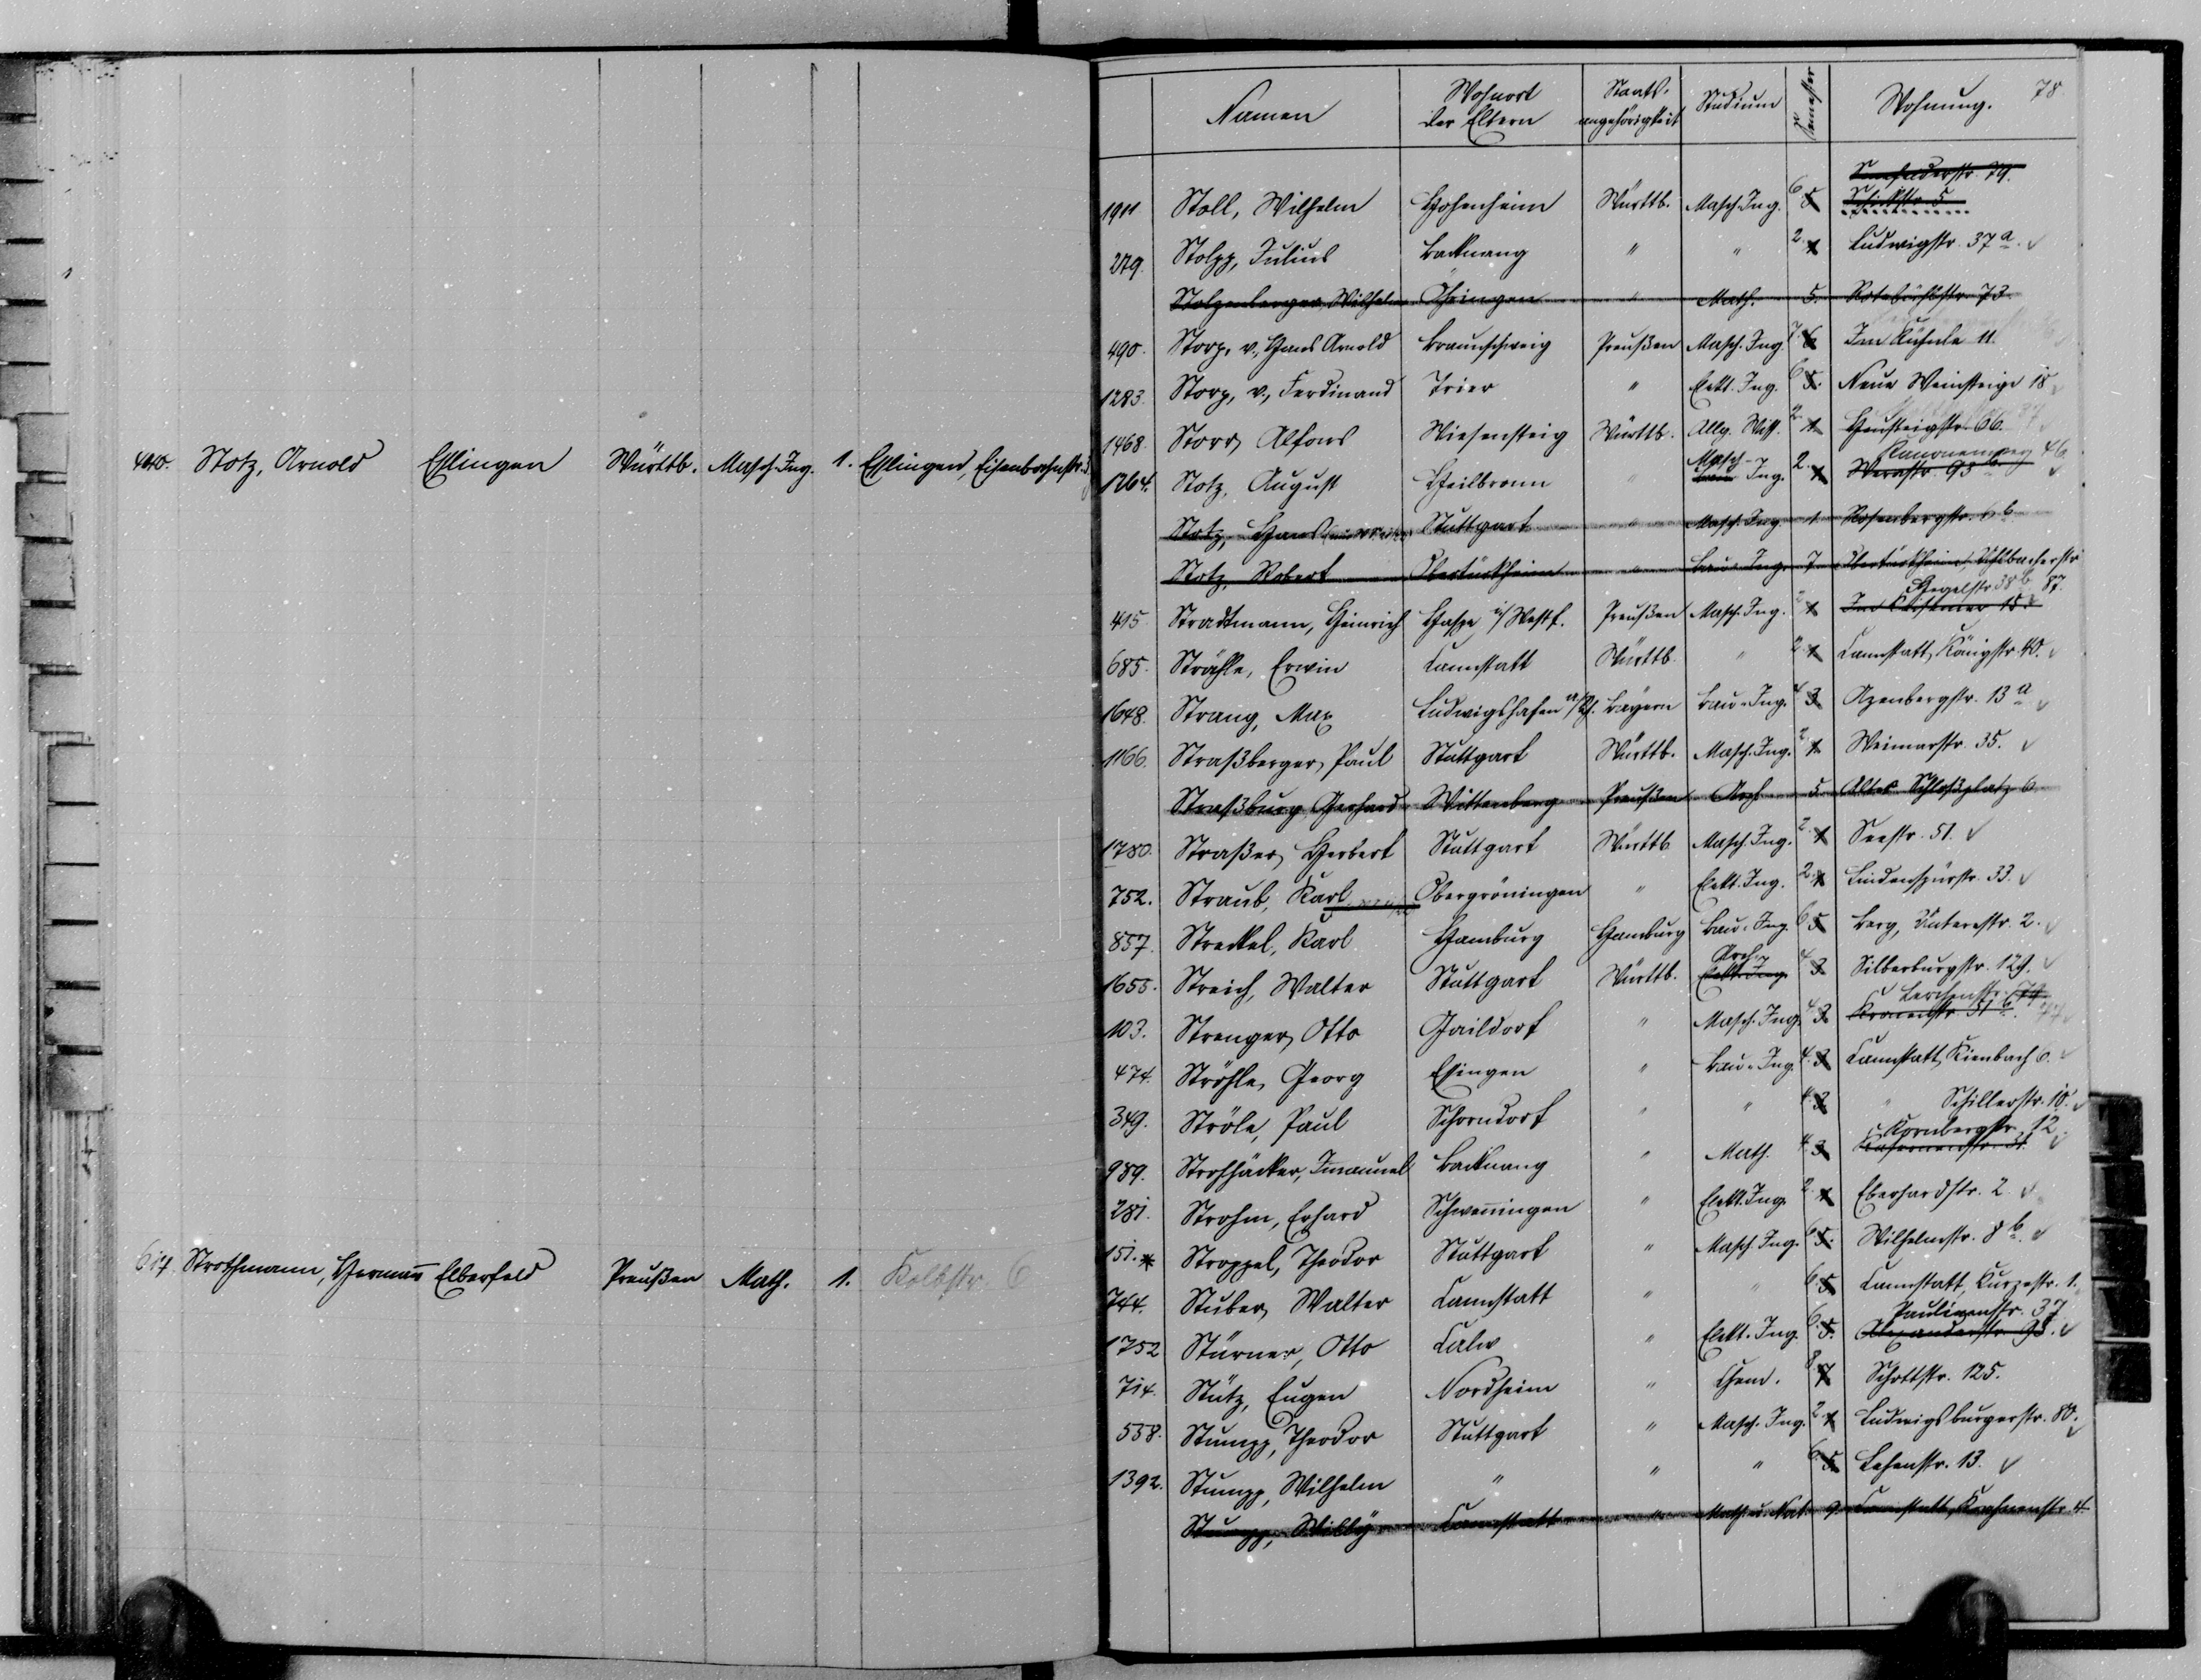 440. Stotz, Arnold Eßlingen Württb. Masch. Ing. 1. Eßlingen, Eisenbahnstr. 3
617. Strothmann, Hermann Elberfeld Preußen Math. 1. Kolbstr. 6
78
Namen Wohnort der Eltern Staatsangehörigkeit Studium Semester Wohnung.
Senefelderstr. 79.
1911 Stoll, Wilhelm Hohenheim Württb. Masch. Ing. 6 5 Schickstr. 5
279. Stolpp, Julius Backnang " " 2. 1 Ludwigstr. 37a.
Stolzenberger, Wilhelm Öhringen " Math. 5. Rotebühlstr. 73.
490. Storp, v., Hans Arnold Braunschweig Preußen Masch. Ing. 7. 6 Im Kühnle 11.
1283. Storp, v., Ferdinand Trier " Elekt. Ing. 6 5. Neue Weinsteige 18
1468. Storr, Alfons Wiesensteig Württb. Allg. Wiss. 2. 1. Heusteigstr. 66.
Masch- Kanonenweg 46
1264. Stotz, August Heilbronn " Bau Ing. 2. 1 Werastr. 93b.
Stotz, Hans Stuttgart " Masch. Ing. 1. Rosenbergstr. 6b
Stotz, Robert Obertürkheim " Bau-Ing. 7 Obertürkheim, Uhlbacherstr. 87.
Hegelstr. 38b
415 Stradtmann, Heinrich Haspe i/Westf. Preußen Masch. Ing. 2 1 Im Kaisemer 15
685. Strähle, Erwin Cannstatt Württb. " 2. 1 Cannstatt, Königstr. 40.
1648. Strang, Max Ludwigshafen a/Rh. Bayern Bau-Ing. 4 3. Azenbergstr. 13a
1166. Straßberger, Paul Stuttgart Württb. Masch. Ing. 2 1. Weimarstr. 35.
Straßburg, Gerhard Wittenberg Preußen Arch 5. Altes Schloßplatz 6
1780. Straßer, Herbert Stuttgart Württb Masch. Ing. 2. 1 Seestr. 51.
752. Straub, Karl Obergröningen " Elekt. Ing. 2. 1 Lindenspürstr. 33.
857. Streckel, Karl Hamburg Hamburg Bau-Ing. 6 5 Berg, Unterestr. 2.
Arch.
1655. Streich, Walter Stuttgart Württb. Elekt. Ing. 4 3. Silberburgstr. 129.
Lerchenstr. 79
103. Strenger, Otto Gaildorf " Masch. Ing. 4 3. Kronenstr. 51b. 44
474. Ströhle, Georg Essingen " Bau-Ing. 4. 3 Cannstatt, Kienbach 6.
349. Ströle, Paul Schorndorf " " 4. 3. " Schillerstr. 18.
Kornbergstr. 12.
989. Strohhäcker, Immanuel Backnang " Math. 4. 3. Kasernenstr. 31.
281. Strohm, Erhard Schwenningen " Elekt. Ing. 2 1 Eberhardstr. 2
151.* Stroppel, Theodor Stuttgart " Masch. Ing. 6 5. Wilhelmstr. 8b.
744. Stuber, Walter Cannstatt " " 6. 5 Cannstatt, Kurzestr. 1.
Paulinenstr. 37
1752 Stürner, Otto Calw " Elekt. Ing. 6. 5. Alexanderstr. 93.
714. Stütz, Eugen Nordheim " Chem. 8 7 Schottstr. 125.
558. Stumpp, Theodor Stuttgart " Masch. Ing. 2. 1 Ludwigsburgerstr. 80.
1392. Stumpp, Wilhelm " " " 6. 5. Lehenstr. 13.
Stumpp, Willy Cannstatt " Math. u. Nat. 9. Cannstatt, 4.